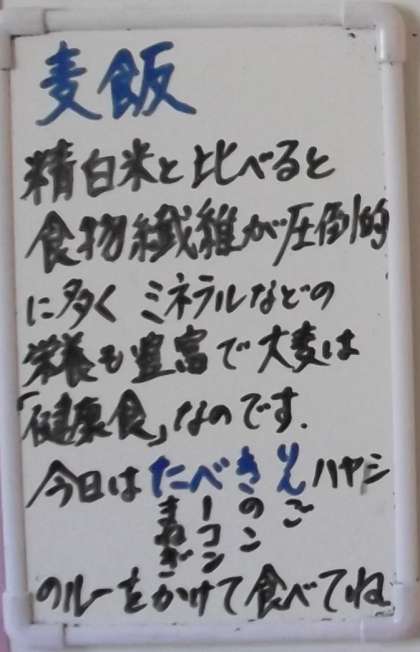 麦飯
精白米と比べると
食物繊維が圧倒的
に多く ミネラルなどの
栄養も豊富で大麦は
「健康食」なのです.
今日はたべきりんハヤシ
まねぎ
ーコン
のこ
ご
のルーをかけて食べてね